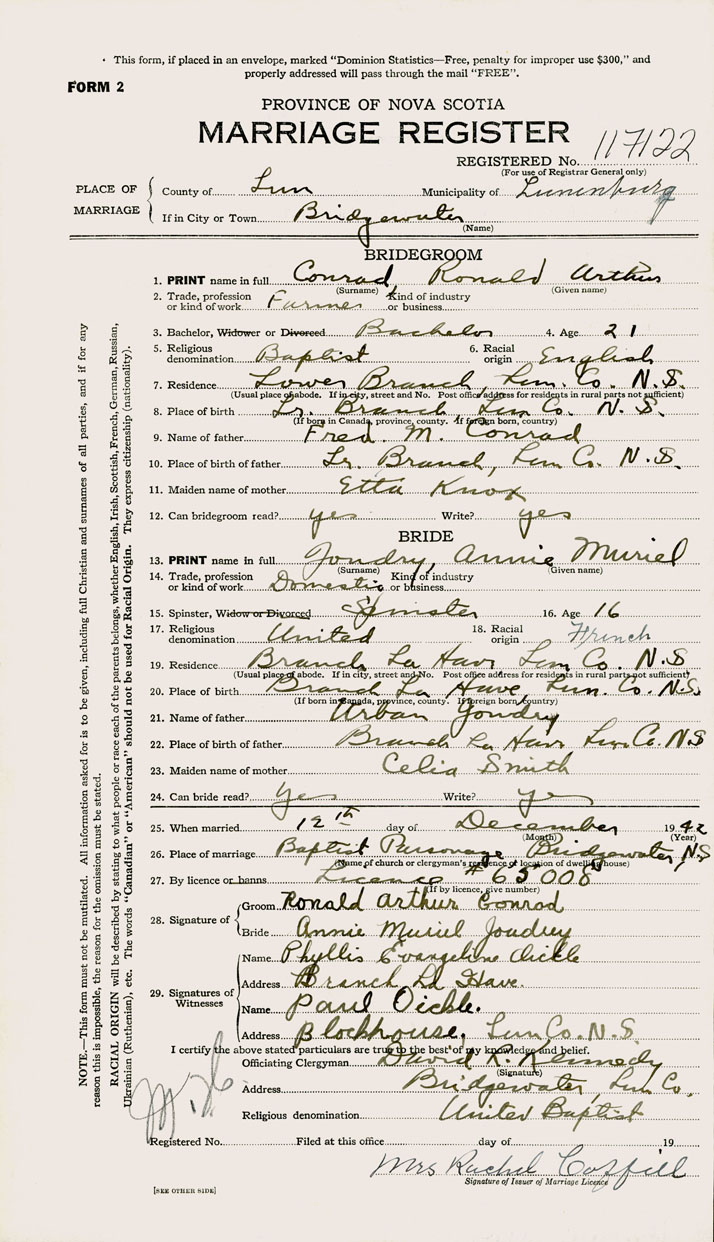 · This form, if placed in an envelope, marked "Dominion Statistics—Free, penalty for improper use $300," and
properly addressed will pass through the mail "FREE".
FORM 2
PROVINCE OF NOVA SCOTIA
MARRIAGE REGISTER
REGISTERED No. 117122
(For use of Registrar General only)
PLACE OF MARRIAGE
County of Lun Municipality of Lunenburg
If in City or Town Bridgewater
(Name)
BRIDEGROOM
1. PRINT name in full Conrad, Ronald Arthur
(Surname) (Given name)
2. Trade, profession or kind of work Farmer Kind of industry or business
3. Bachelor, Widower or Divorced Bachelor 4. Age 21
5. Religious denomination Baptist 6. Racial origin English
7. Residence Lower Branch, Lun. Co. N.S.
(Usual place of abode. If in city, street and No. Post office address for residents in rural parts not sufficient)
8. Place of birth Lr. Branch, Lun Co. N.S.
(If born in Canada, province, county. If foreign born, country)
9. Name of father Fred. M. Conrad
10. Place of birth of father Lr. Branch, Lun Co. N.S.
11. Maiden name of mother Etta Knox
12. Can bridegroom read? yes Write? yes
BRIDE
13. PRINT name in full Joudry, Annie Muriel
(Surname) (Given name)
14. Trade, profession or kind of work Domestic Kind of industry or business
15. Spinster, Widow or Divorced Spinster 16. Age 16
17. Religious denomination United 18. Racial origin French
19. Residence Branch La Have Lun Co. N.S
(Usual place of abode. If in city, street and No. Post office address for residents in rural parts not sufficient)
20. Place of birth Branch La Have, Lun. Co. N.S
(If born in Canada, province, county. If foreign born, country)
21. Name of father Urban Joudry
22. Place of birth of father Branch La Have Lun. Co. N.S
23. Maiden name of mother Celia Smith
24. Can bride read? yes Write? yes
25. When married 12th day of December 1942
(Month) (Year)
26. Place of marriage Baptist Parsonage Bridgewater, N.S
(Name of church or clergyman's residence or location of dwelling house)
27. By licence or banns Licence # 65008
(If by licence, give number)
28. Signature of
Groom Ronald Arthur Conrad
Bride Annie Muriel Joudrey
29. Signatures of Witnesses
Name Phyllis Evangeline Oickle
Address Branch La Have.
Name Paul Oickle.
Address Blockhouse, Lun Co. N.S.
I certify the above stated particulars are true to the best of my knowledge and belief.
Officiating Clergyman David R. Kennedy
(Signature)
Address Bridgewater, Lun Co.
Religious denomination United Baptist
Registered No. Filed at this office day of 19
Mrs Rachel
Signature of Issuer of Marriage Licence
[SEE OTHER SIDE]
NOTE.—This form must not be mutilated. All information asked for is to be given, including full Christian and surnames of all parties, and if for any
reason this is impossible, the reason for the omission must be stated.
RACIAL ORIGIN will be described by stating to what people or race each of the parents belongs, whether English, Irish, Scottish, French, German, Russian,
Ukrainian (Ruthenian), etc. The words "Canadian" or "American" should not be used for Racial Origin. They express citizenship (nationality).